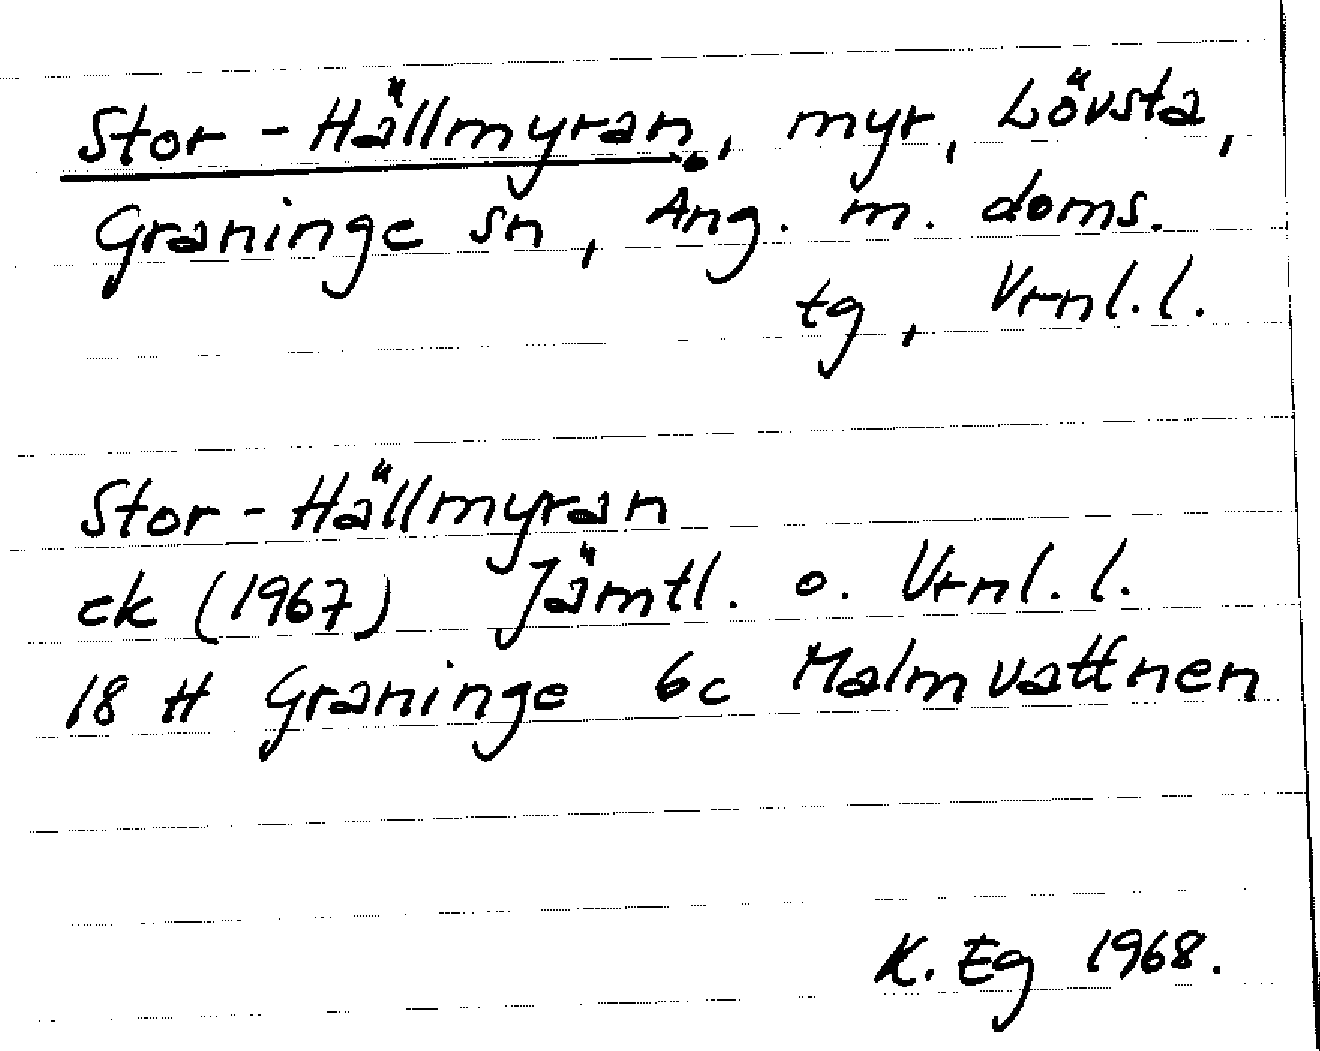 Stor-Hällmyran, myr, Lövsta,
Graninge sn, Ång. m. doms.
tg, Vrnl. l.
Stor-Hällmyran
ek (1967) Jämtl. o. Vrnl. l.
18 H Graninge 6c Malmvattnen
K. Eg 1968.